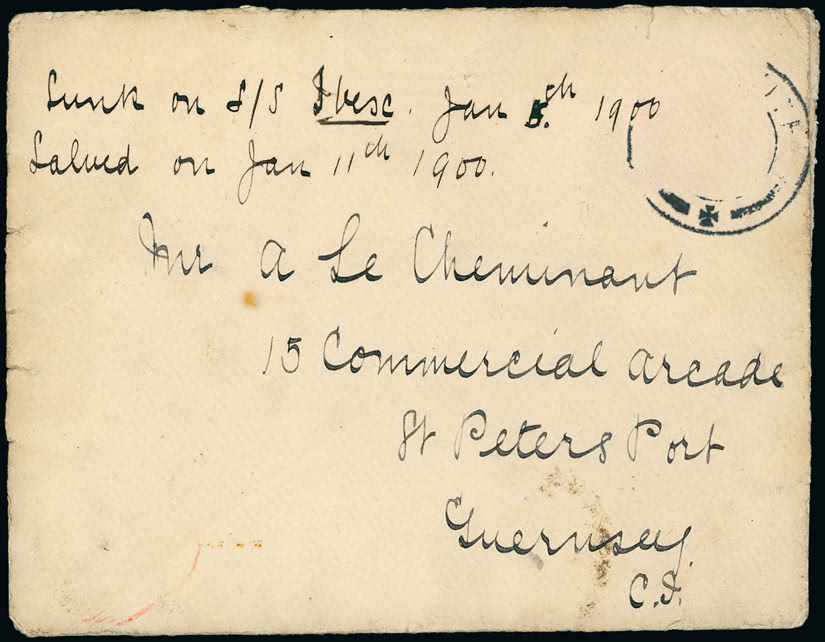 Sunk on S/S Ibesc. Jan 5th 1900
Salved on Jan 11th 1900.
Mr A Le Cheminant
15 Commercial Arcade
St Peters Port
Guernsey.
C.I.